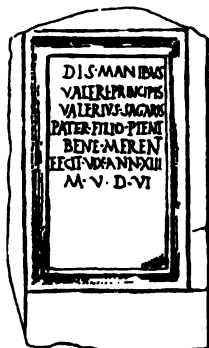 DIS·MANIBUS
VALERI·PRINCIPIS
VALERIVS·SAGARIS
PATER·FILIO·PIENT
BENE·MEREN
FECIT·VIX·ANN·XIII
M·V·D·VI